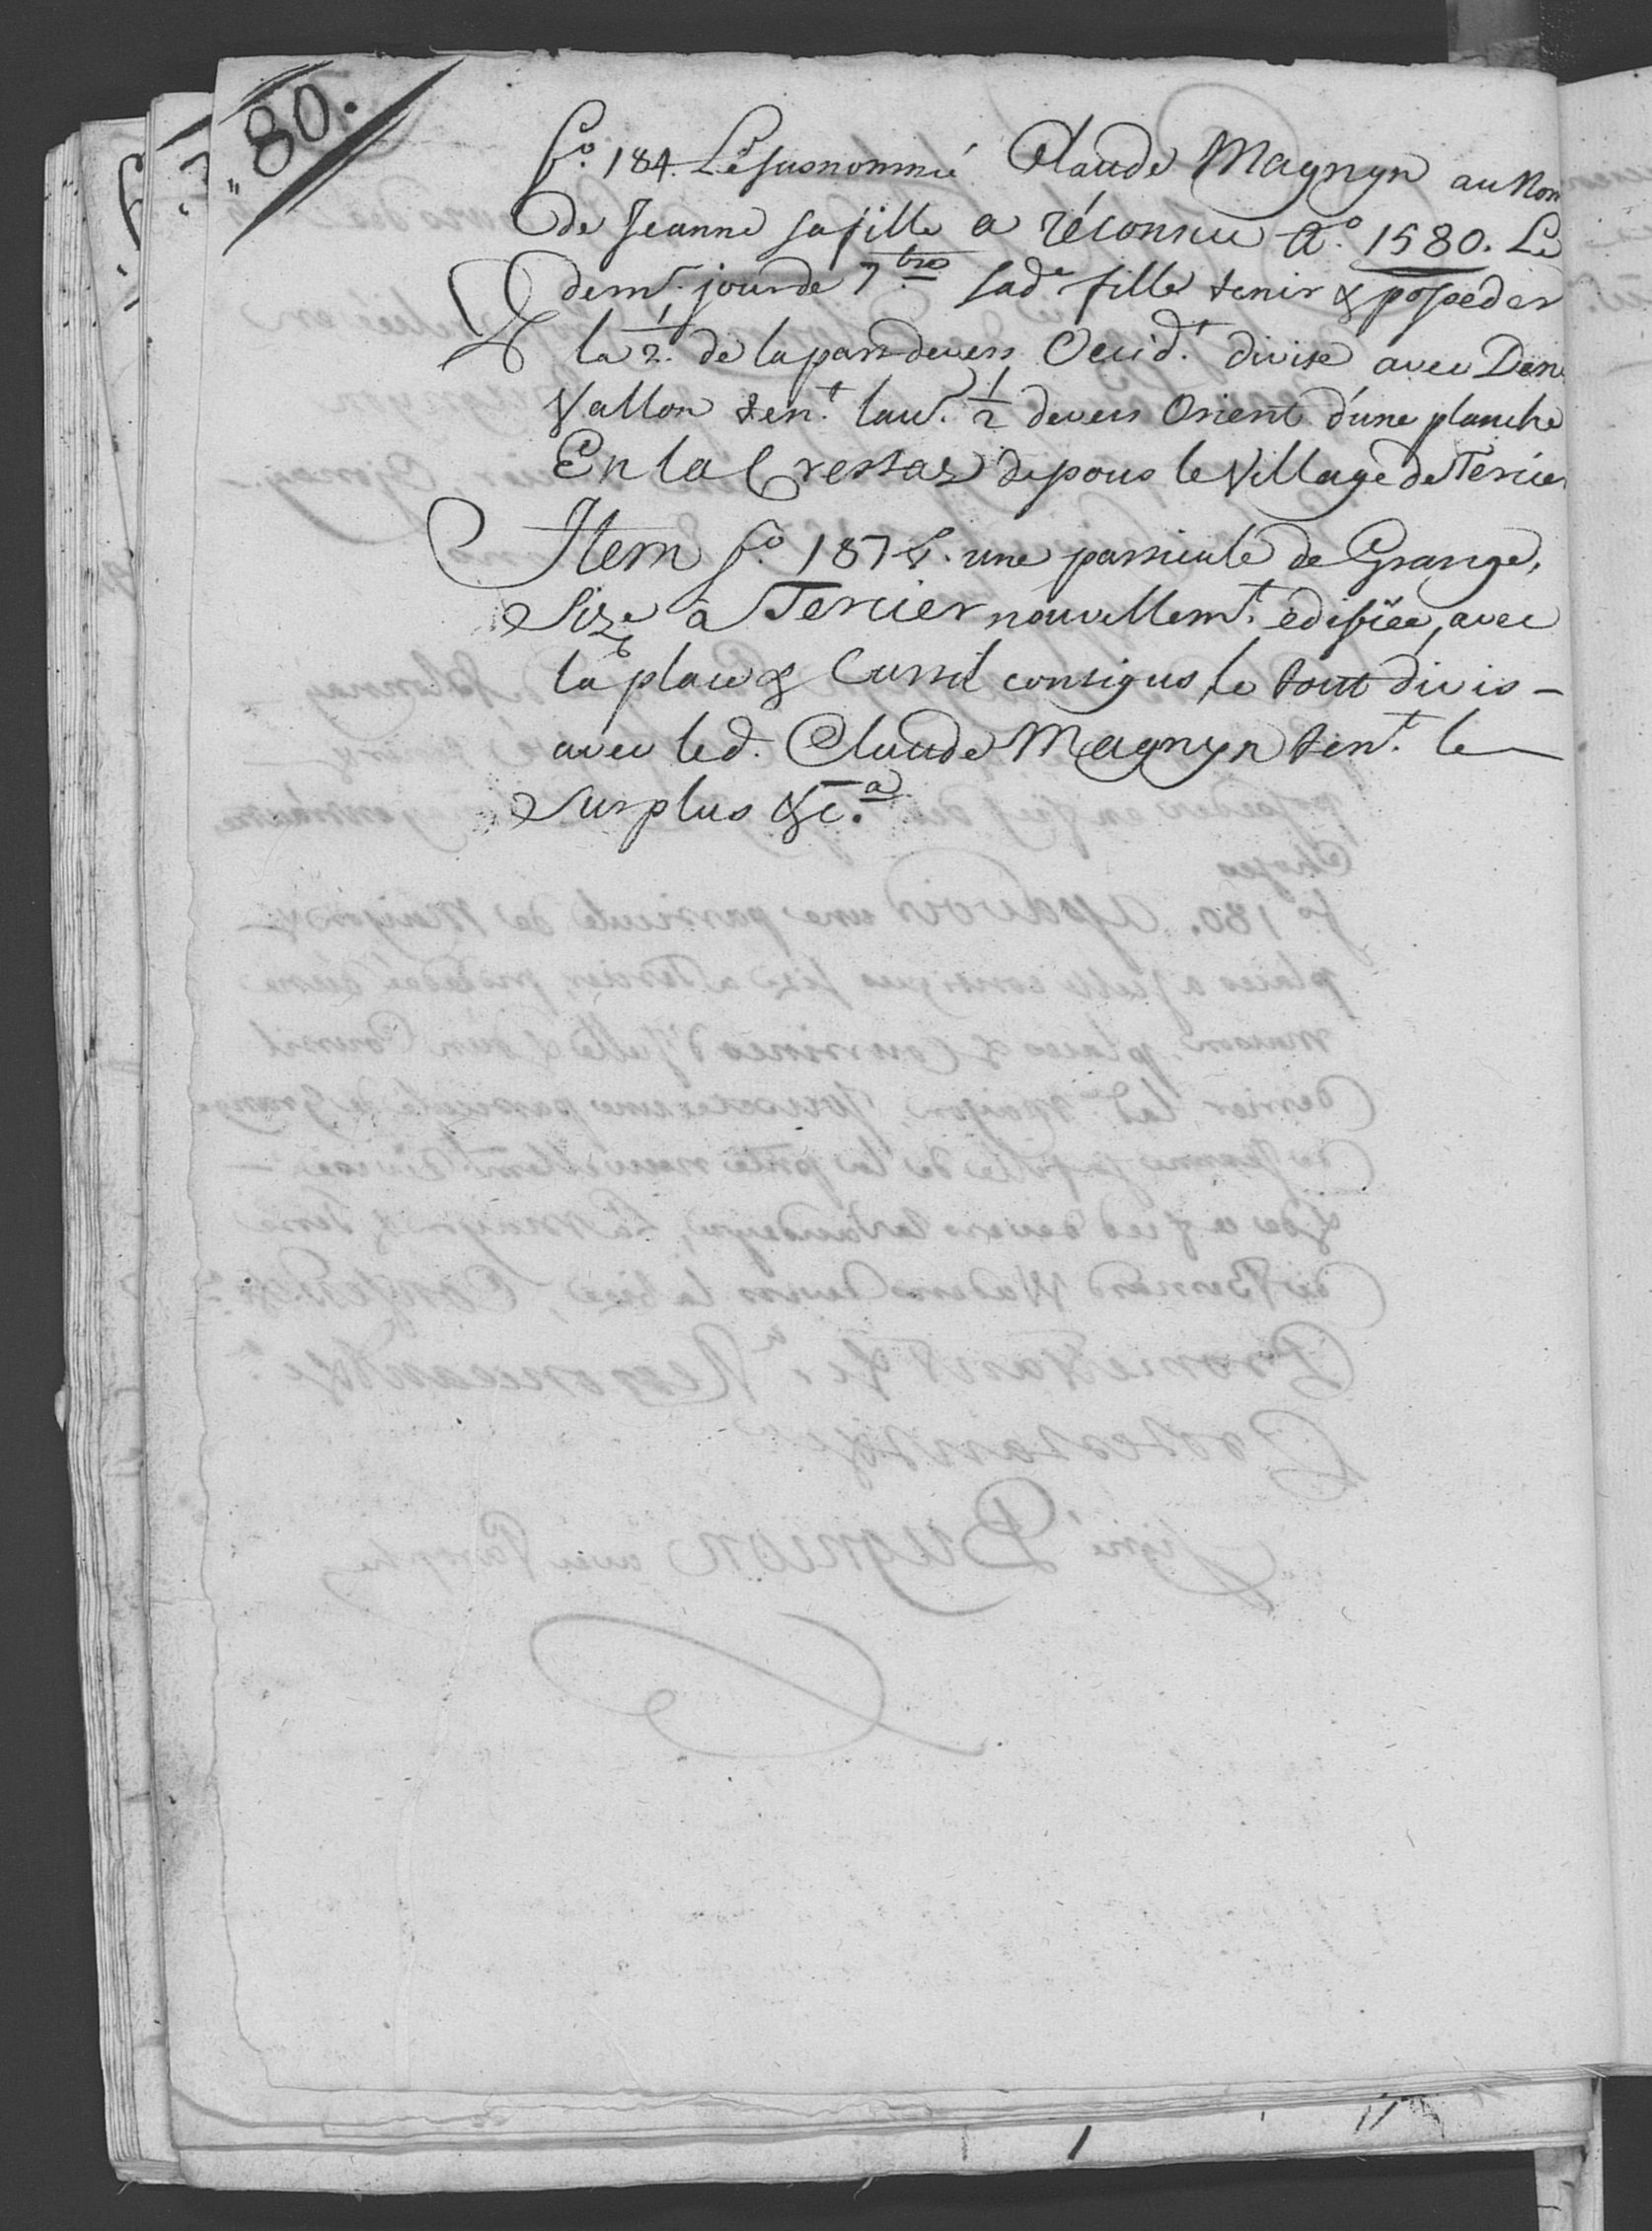 80.
fo. 184. Le susnommé Claude Magnyn au Nom
de Jeanne sa fille a réconnu Ao. 1580. Le
dernr. jour de 7bre sade fille tenir & posseder
la 1/2. de la part devers Occidt. divise avec
Vallon tent. lau. 1/2 devers Orient d'une planche
En la Cressaz desous le Village de Tercier
Item fo. 187 une particule de Grange,
Size à Tercier nouvellemt. edifiée, avec
la place & Curtil contigus, le tout divis -
avec led. Claude Magnyn tent. le
Surplus &c.a